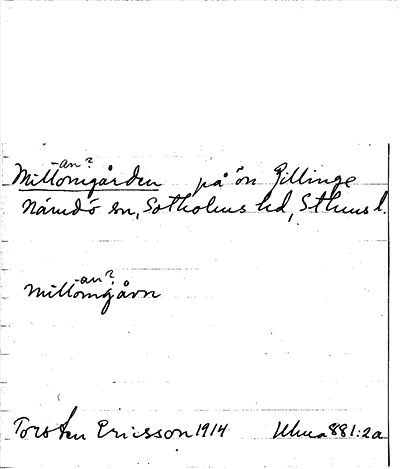 -an?
Mittomgården på ön Jillinge
Nämdö sn, Sotholms hd, Sthms l.
-an?
mittomgåvn
Torsten Ericsson 1914 Ulma 881:2a